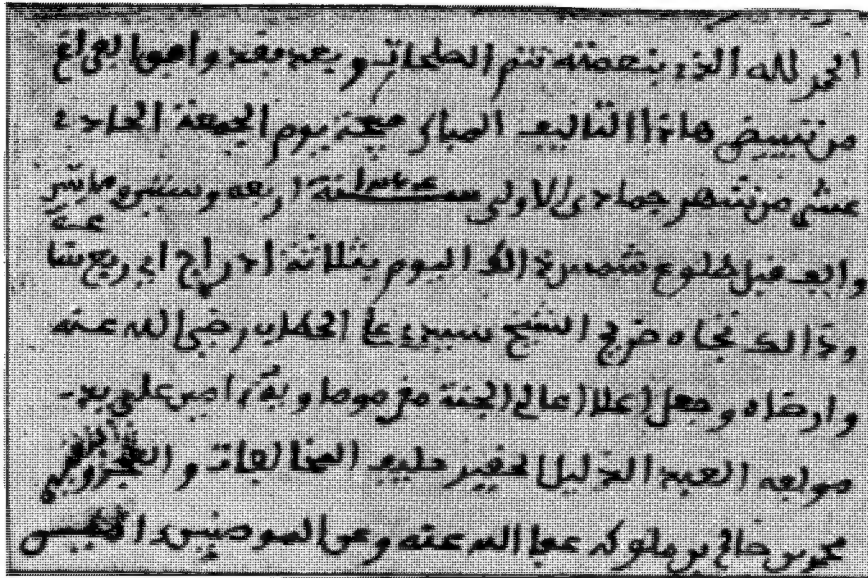 الحمد لله الذي بنعمته تتم الصلحات وبعد فقد وافق الفراغ
من تبييض هاذا التاليف المبارك صبيحة يوم الجمعة الحادي
عشر من شهر جمادى الاولى سنة اربعه وستين مائتين
والف قبل طلوع شمس ذالك اليوم بثلاثة ادراج اي ربع
وذالك تجاه ضريح الشيخ سيدي رضي الله عنه
وارضاه وجعل اعلا اعالي الجنة امين على يد
مولفه العبد الذليل الحقير حليف المخالفات و
محمد بن صالح بن ملوكه عفا الله عنه وعن المومنين